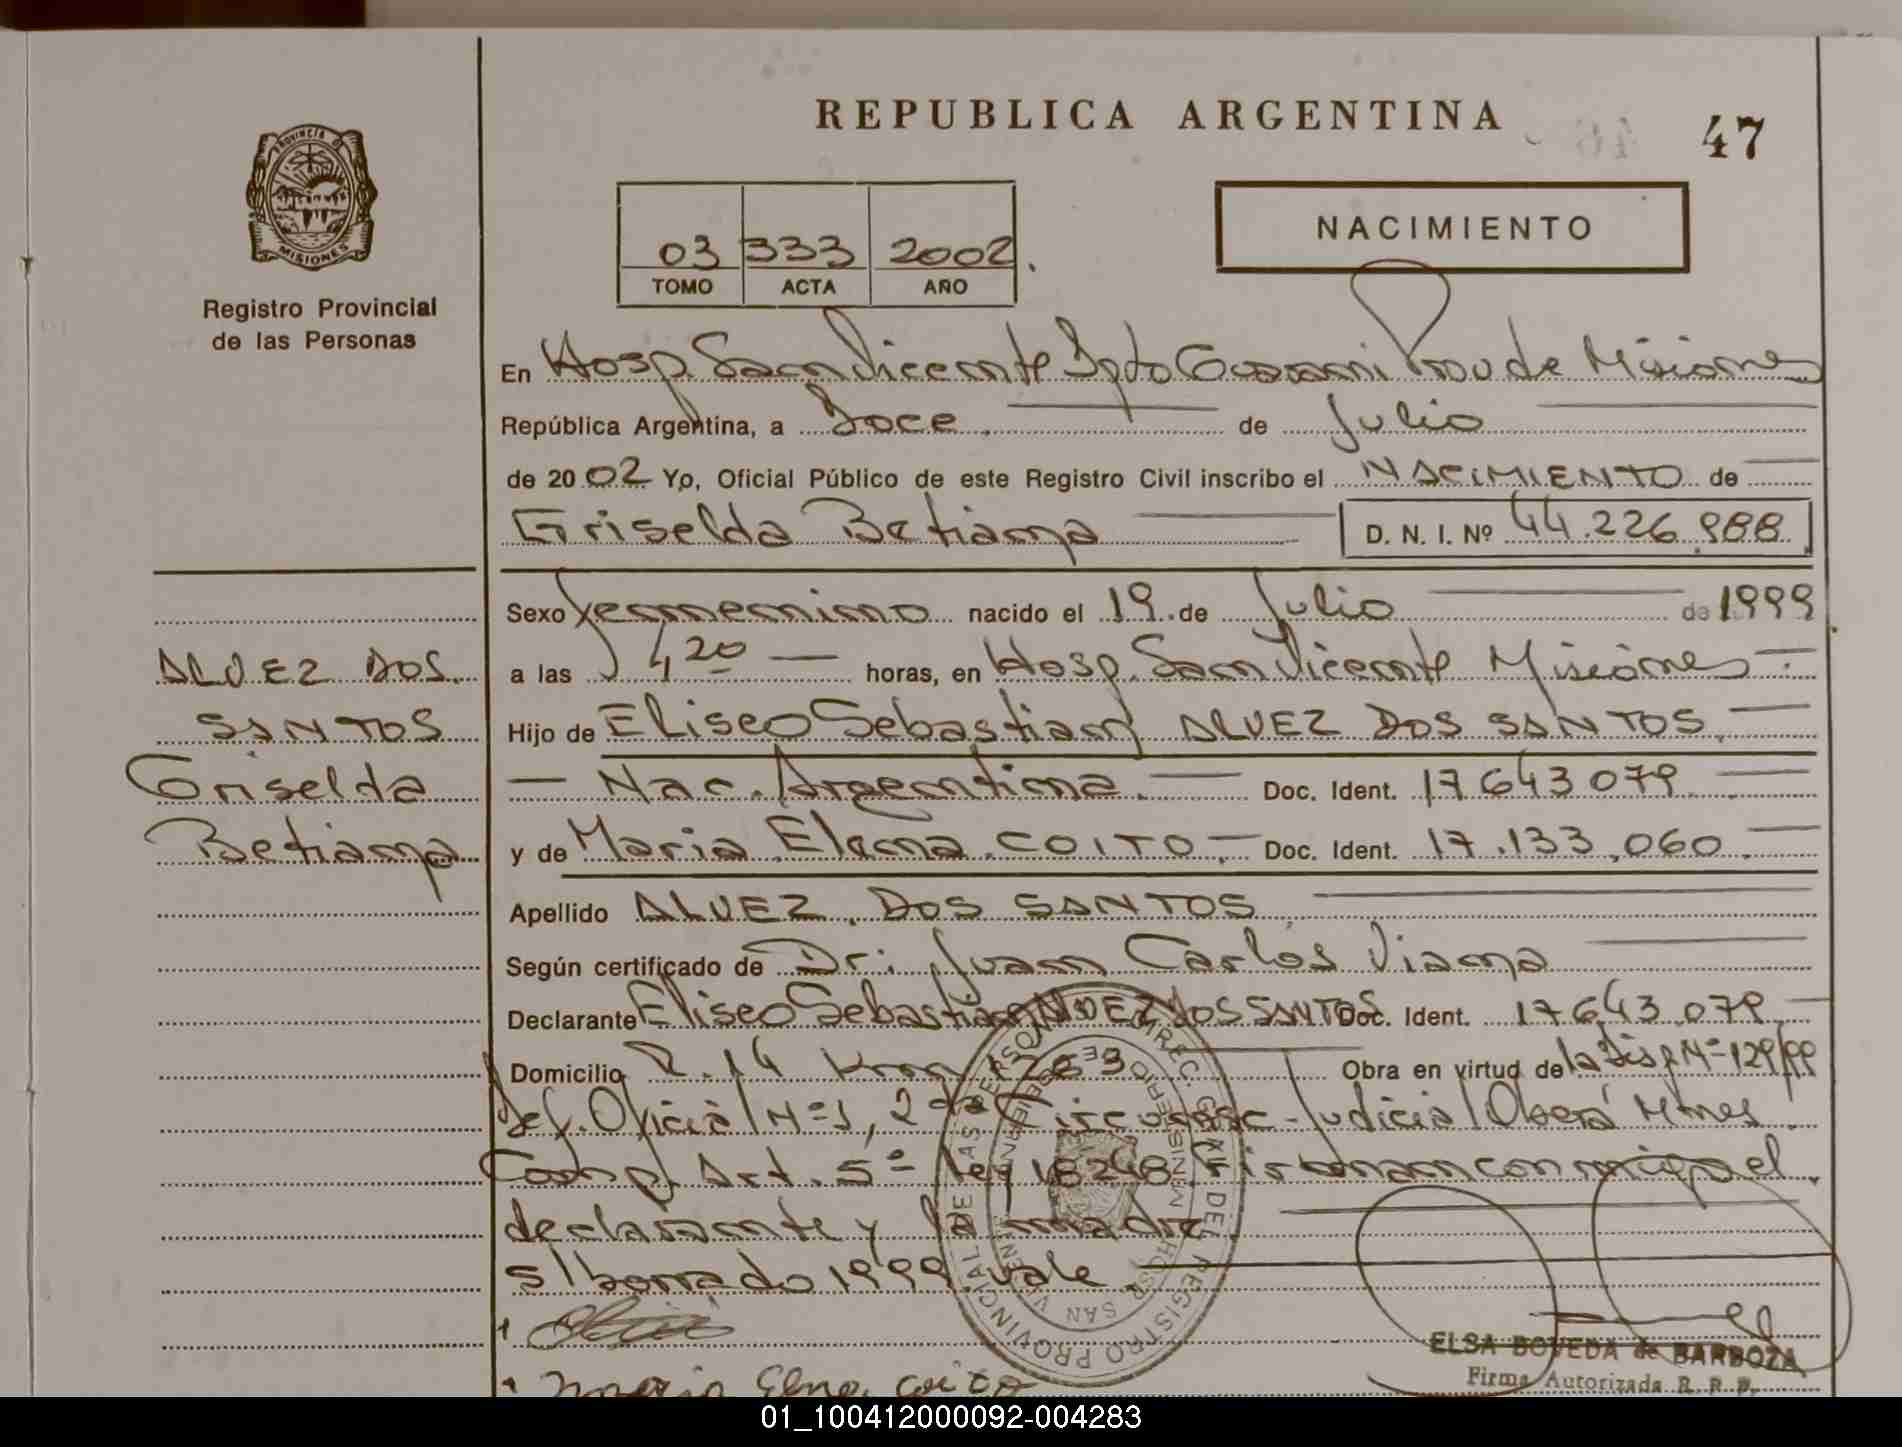 REPUBLICA ARGENTINA
47
PROVINCIA DE
MISIONES
Registro Provincial
de las Personas
03 333 2002
TOMO ACTA AÑO
NACIMIENTO
En Hosp. San Vicente Dpto Guarani Prov de Misiones
República Argentina, a Doce de Julio
de 2002 Yo, Oficial Público de este Registro Civil inscribo el NACIMIENTO de
Griselda Betiana D. N. I. Nº 44.226.988
Sexo Femenino nacido el 19 de Julio de 1999
a las 4,20 horas, en Hosp. San Vicente Misiones
Hijo de Eliseo Sebastian ALVEZ DOS SANTOS
Nac. Argentina Doc. Ident. 17643079
y de Maria Elena COITO Doc. Ident. 17.133.060
Apellido ALVEZ DOS SANTOS
Según certificado de Dr. Juan Carlos Viana
Declarante Eliseo Sebastian ALVEZ DOS SANTOS Doc. Ident. 17643.079
Domicilio R. 14 Km 1263 Obra en virtud de la Disp Nº 129/99
Def. Oficial Nº 1, 2da Circunsc. Judicial Oberá Mnes
Comp. Art. 5º Ley 18248 Firman conmigo el
declarante y la madre
s/borrado 1999 vale.
ALVEZ DOS
SANTOS
Griselda
Betiana
DIREC. GRAL. DEL REGISTRO PROVINCIAL DE LAS PERSONAS
MINISTERIO DE
HOSP. SAN VICENTE
Maria Elena Coito
ELSA BOVEDA de BARBOZA
Firma Autorizada R. P. P.
01_100412000092-004283